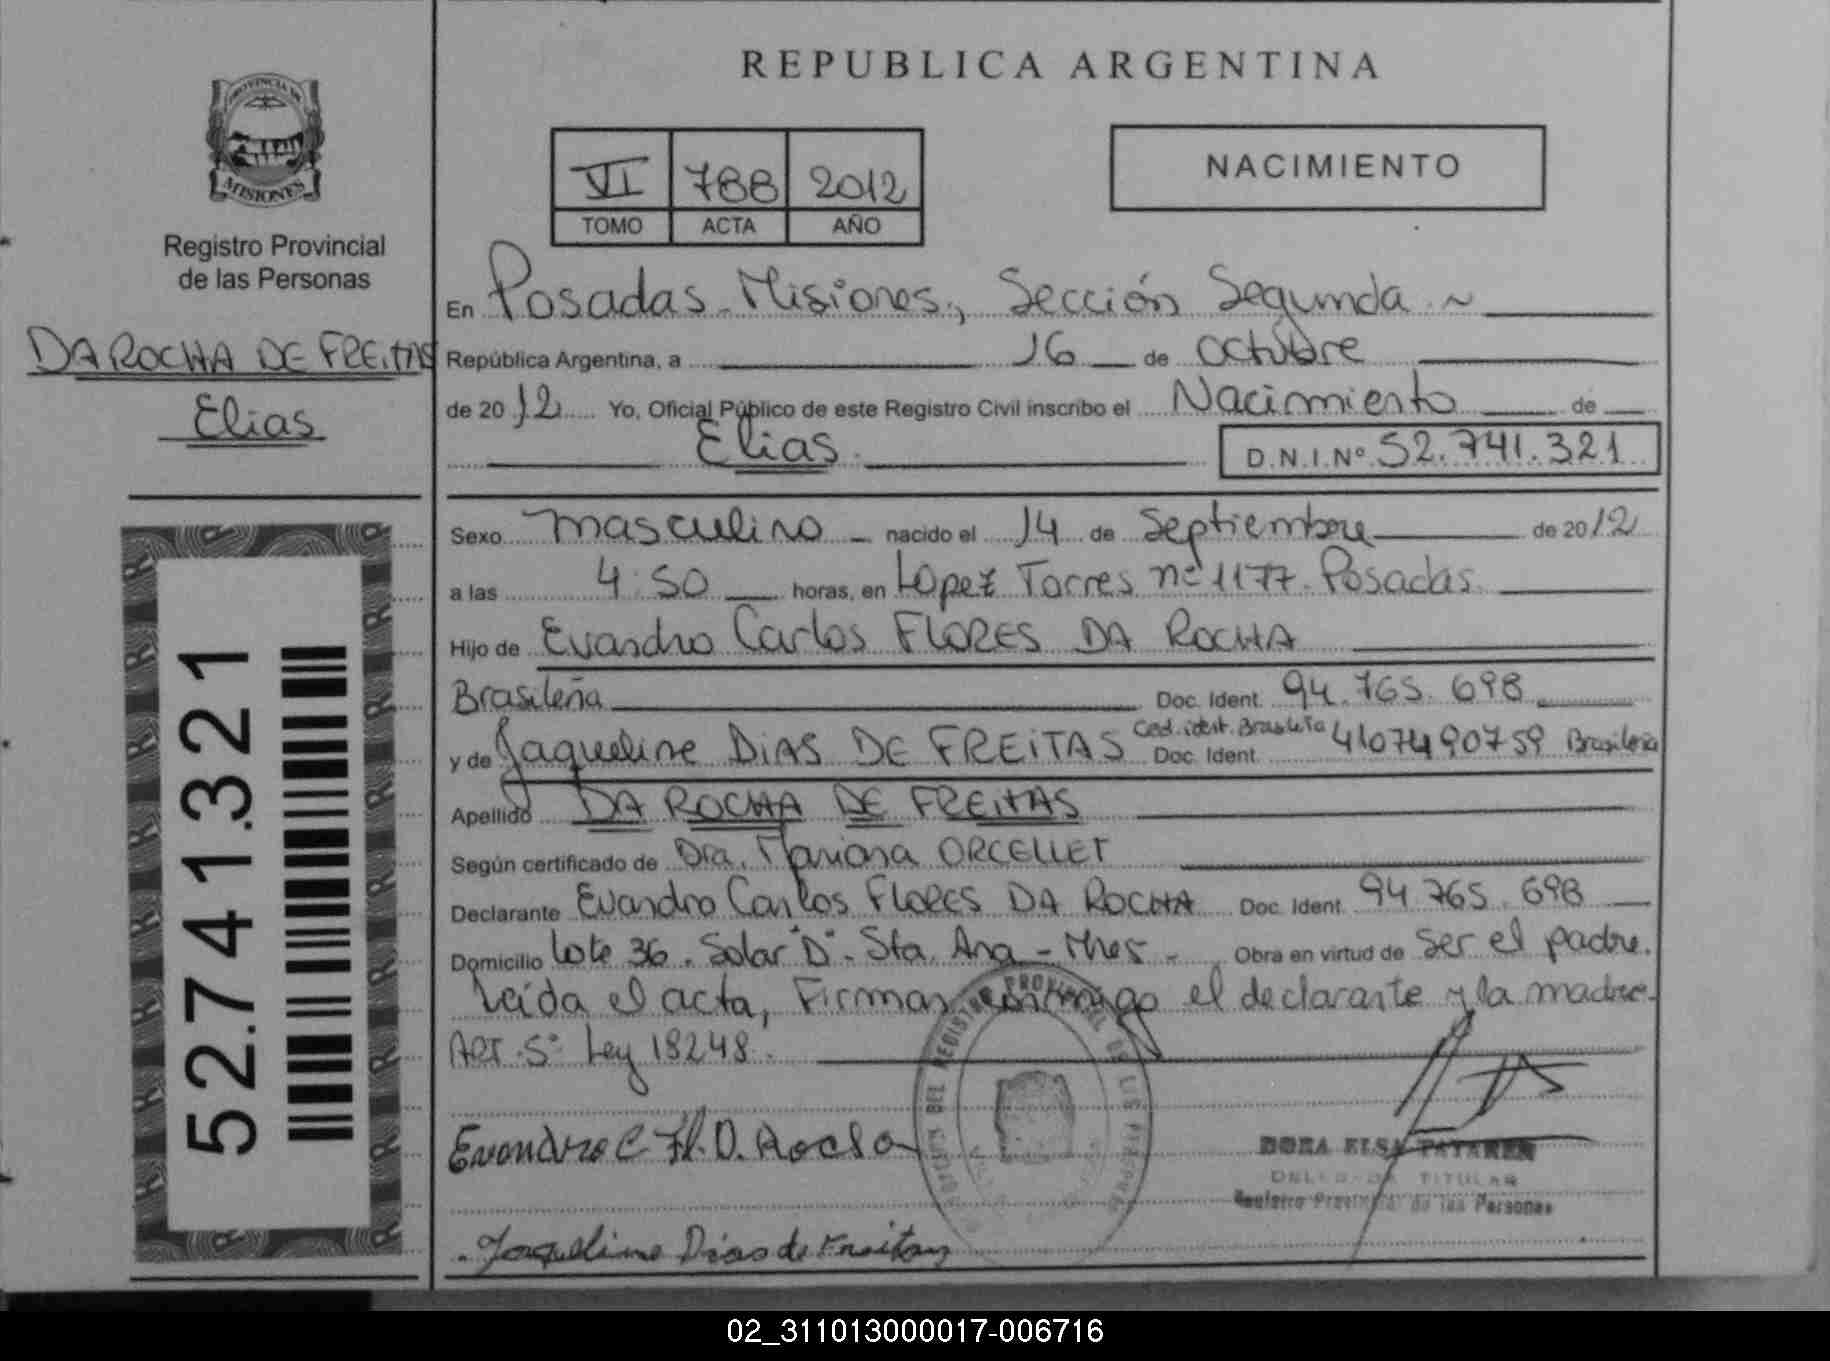 REPUBLICA ARGENTINA
PROVINCIA DE
MISIONES
Registro Provincial
de las Personas
DA ROCHA DE FREITAS
Elias
52.741.321
VI 788 2012
TOMO ACTA AÑO
NACIMIENTO
En Posadas - Misiones, Sección Segunda
República Argentina, a 16 de octubre
de 2012 Yo, Oficial Público de este Registro Civil inscribo el Nacimiento de
Elias
D.N.I.Nº 52.741.321
Sexo masculino nacido el 14 de Septiembre de 2012
a las 4:50 horas, en Lopez Torres nº 1177. Posadas
Hijo de Evandro Carlos FLORES DA ROCHA
Brasileña Doc. Ident. 94.765.698
y de Jaqueline DIAS DE FREITAS Ced. ident. Brasileña Doc. Ident. 4107490759 Brasileña
Apellido DA ROCHA DE FREITAS
Según certificado de Dra. Mariana ORCELLET
Declarante Evandro Carlos FLORES DA ROCHA Doc. Ident. 94.765.698
Domicilio Lote 36. Solar "D". Sta. Ana - Mnes - Obra en virtud de ser el padre.
Leída el acta, Firman conmigo el declarante y la madre.
ART. 5º Ley 18248.
Evandro C. Fl. D. Rocha
DORA ELSA
TITULAR
Registro Provincial de las Personas
Jaqueline Dias de Freitas
02_311013000017-006716